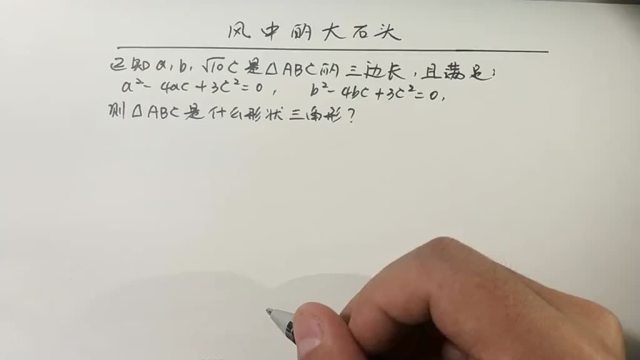 风中的大石头
已知a,b,√10c是△ABC的三边长,且满足:
a²-4ac+3c²=0, b²-4bc+3c²=0,
则△ABC是什么形状三角形?